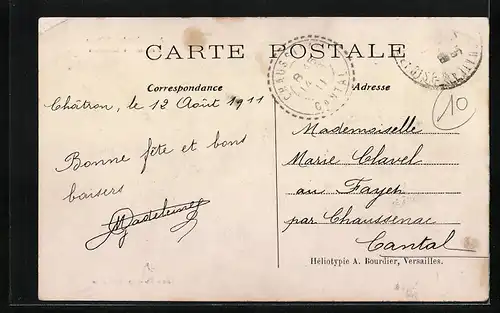 CARTE POSTALE
Correspondance
Adresse
Châtron, le 12 Août 1911
Bonne fête et bons
baisers
Madeleine
Mademoiselle
Marie Clavel
au Fayet
par Chaussenac
Cantal
10
Héliotypie A. Bourdier, Versailles.